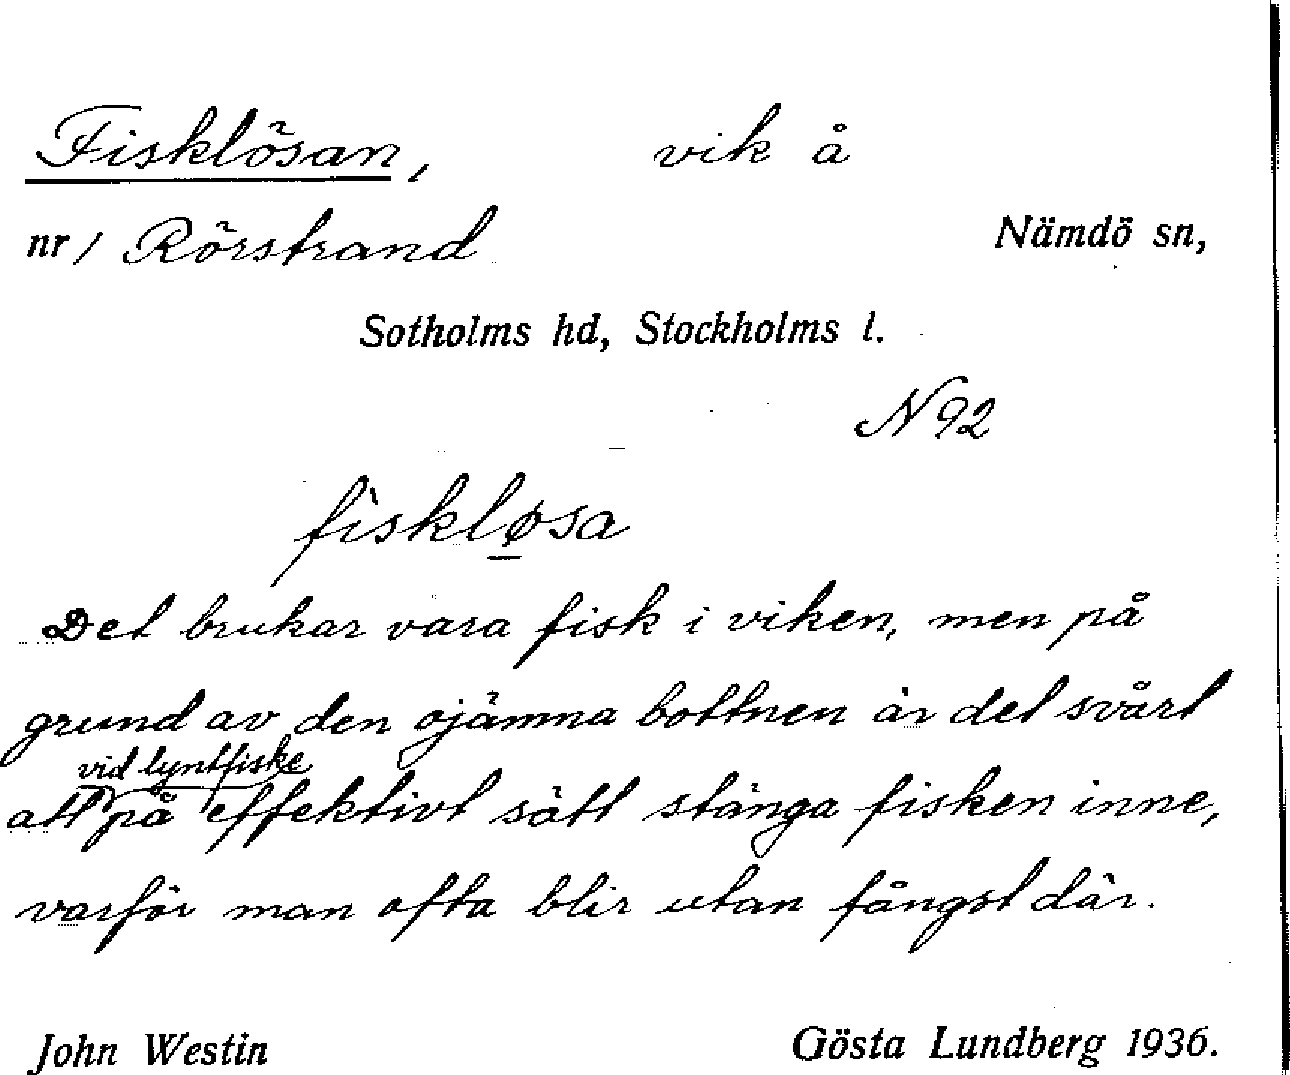 Fisklösan, vik å
nr/ Rörstrand Nämdö sn,
Sotholms hd, Stockholms l.
N 92
fiskløsa
Det brukar vara fisk i viken, men på
grund av den ojämna bottnen är det svårt
vid lyntfiske
att på effektivt sätt stänga fisken inne,
varför man ofta blir utan fångst där.
John Westin Gösta Lundberg 1936.